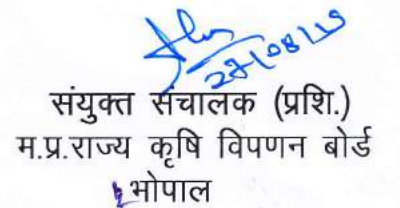 27/08/19
संयुक्त संचालक (प्रशि.)
म.प्र.राज्य कृषि विपणन बोर्ड
भोपाल